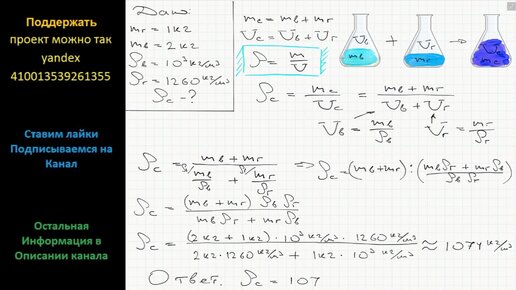 Поддержать
проект можно так
yandex
410013539261355
Ставим лайки
Подписываемся на
Канал
Остальная
Информация в
Описании канала
Дано:
mг = 1кг
mв = 2кг
ρв = 10³ кг/м³
ρг = 1260 кг/м³
ρс - ?
mс = mв + mг
Vс = Vв + Vг
ρ = m/V
Vв + Vг → Vс
mв mг mс
ρс = mс/Vс = (mв + mг)/(Vв + Vг)
Vв = mв/ρв Vг = mг/ρг
ρс = (mв + mг)/(mв/ρв + mг/ρг) ⇒ ρс = (mв + mг) : ((mвρг + mгρв)/(ρвρг))
ρс = (mв + mг) ρвρг/(mвρг + mгρв)
ρс = (2кг + 1кг) · 10³ кг/м³ · 1260 кг/м³/(2кг · 1260 кг/м³ + 1кг · 10³ кг/м³) ≈ 1074 кг/м³
Ответ. ρс = 107